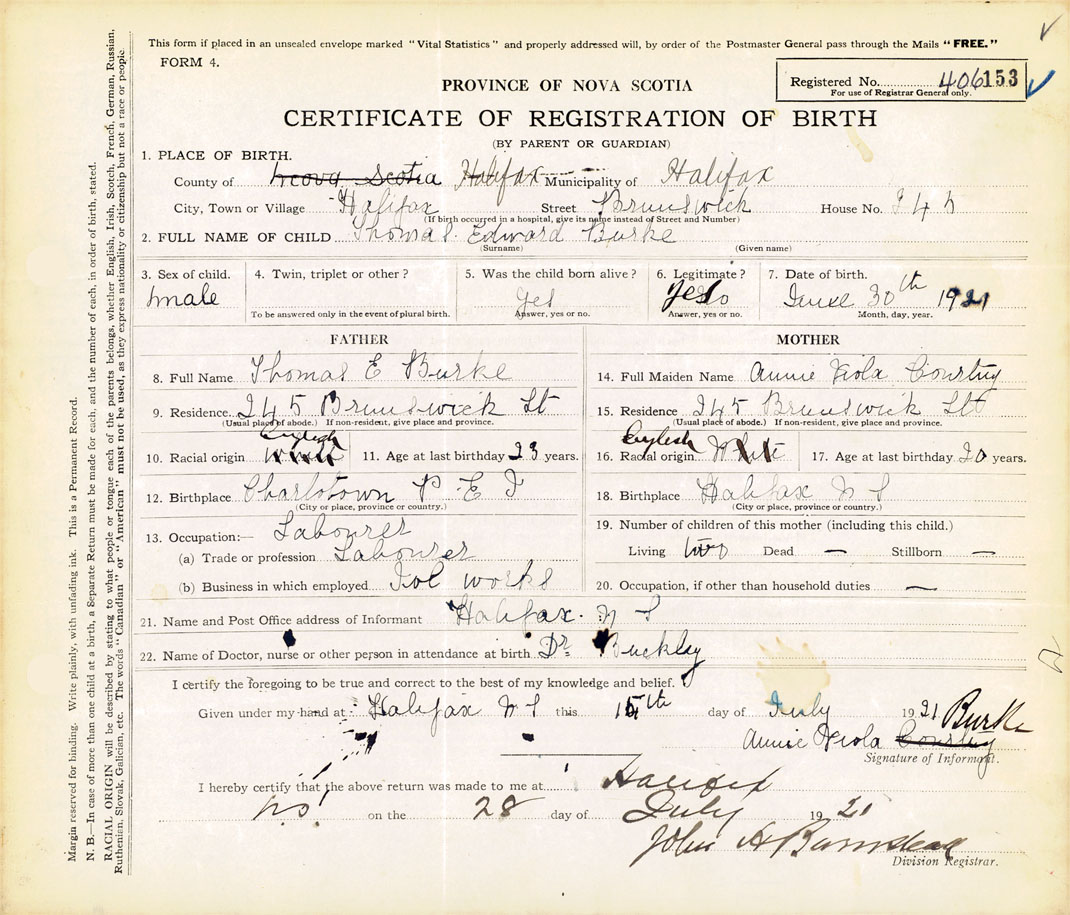 This form if placed in an unsealed envelope marked "Vital Statistics" and properly addressed will, by order of the Postmaster General pass through the Mails "FREE."
FORM 4.
PROVINCE OF NOVA SCOTIA
Registered No. 406153
For use of Registrar General only.
CERTIFICATE OF REGISTRATION OF BIRTH
(BY PARENT OR GUARDIAN)
1. PLACE OF BIRTH.
County of Scotia Halifax Municipality of Halifax
City, Town or Village Halifax Street Brunswick House No. 245
(If birth occurred in a hospital, give its name instead of Street and Number)
2. FULL NAME OF CHILD Thomas Edward Burke
(Surname) (Given name)
3. Sex of child. 4. Twin, triplet or other? 5. Was the child born alive? 6. Legitimate? 7. Date of birth.
male yes yes June 30th 1921
To be answered only in the event of plural birth. Answer, yes or no. Answer, yes or no. Month, day, year.
FATHER
8. Full Name Thomas E Burke
9. Residence 245 Brunswick St
(Usual place of abode.) If non-resident, give place and province.
English
10. Racial origin 11. Age at last birthday 23 years.
12. Birthplace Charlotown P E I
(City or place, province or country.)
13. Occupation:— Labourer
(a) Trade or profession Labourer
(b) Business in which employed works
MOTHER
14. Full Maiden Name Annie Viola
15. Residence 245 Brunswick St
(Usual place of abode.) If non-resident, give place and province.
English
16. Racial origin White 17. Age at last birthday 20 years.
18. Birthplace Halifax N S
(City or place, province or country.)
19. Number of children of this mother (including this child.)
Living two Dead — Stillborn —
20. Occupation, if other than household duties —
21. Name and Post Office address of Informant Halifax N S
22. Name of Doctor, nurse or other person in attendance at birth Dr Buckley
I certify the foregoing to be true and correct to the best of my knowledge and belief.
Given under my hand at Halifax N S this 15th day of July 1921
Annie Viola Burke
Signature of Informant.
I hereby certify that the above return was made to me at Halifax
N.S. on the 28 day of July 1921
John A Barnstead
Division Registrar.
Margin reserved for binding. Write plainly, with unfading ink. This is a Permanent Record.
N. B.—In case of more than one child at a birth, a Separate Return must be made for each, and the number of each, in order of birth, stated.
RACIAL ORIGIN will be described by stating to what people or tongue each of the parents belongs, whether English, Irish, Scotch, French, German, Russian,
Ruthenian, Slovak, Galician, etc. The words "Canadian" or "American" must not be used, as they express nationality or citizenship but not a race or people.